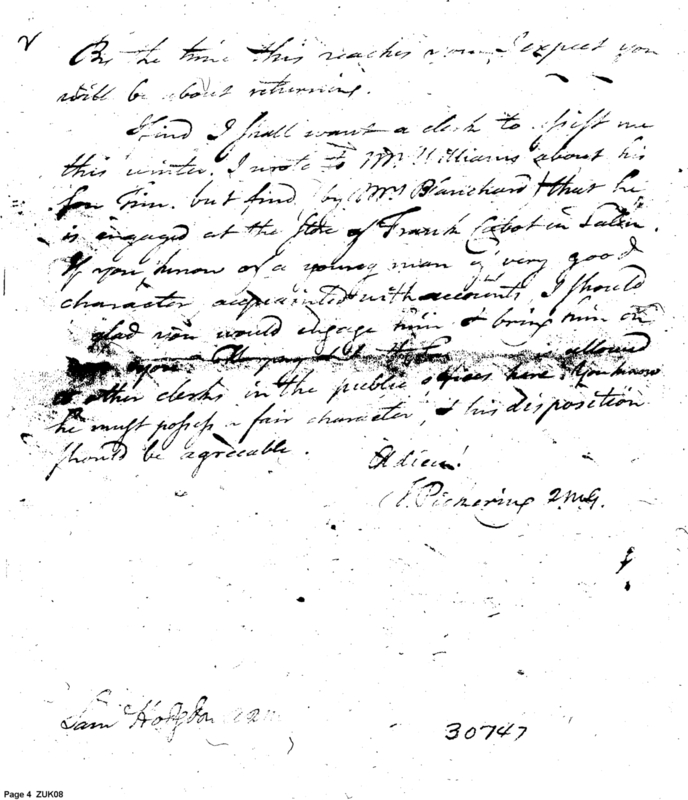 By the time this reaches you I expect you
will be about returning.
I find I shall want a clerk to assist me
this winter. I wrote to Mr. Williams about his
son Tim. but find by Mrs. Blanchard that he
is engaged at the Store of Frank Cabot in Salem.
If you know of a young man of very good
character acquainted with accounts, I should
glad you would engage him & bring him on
you allowed
to other clerks in the public offices here. You know
he must possess a fair character, & his disposition
should be agreeable.
Adieu!
T. Pickering QMG.
Sam Hodgdon
30747
Page 4 ZUK08